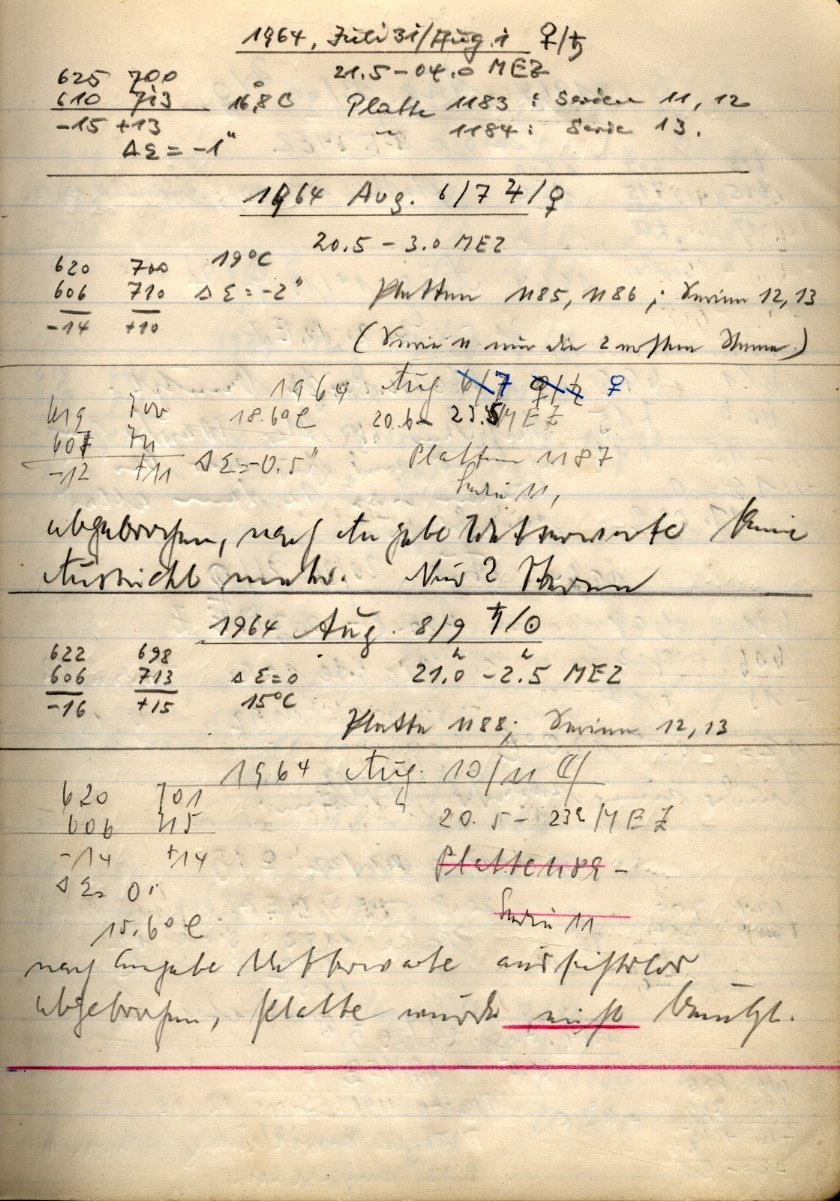 1964, Juli 31/Aug. 1 ♀/♄
21.5 – 04.0 MEZ
625 700
610 713 16,8°C Platte 1183 : Serien 11, 12
-15 +13 " 1184 : Serie 13.
Δε = -1"
1964 Aug. 6/7 ♃/♀
20.5 – 3.0 MEZ
620 700 19°C
606 710 Δε = -2" Platten 1185, 1186 ; Serien 12, 13
-14 +10
(Serie 11 nur die 2 ersten Sterne)
1964 Aug 6/7 ♀/♄ ♀
619 700 18.6°C 20.6 – 23.5 MEZ
607 711 Δε = -0.5" Platten 1187
-12 +11
Serie 11,
abgebrochen, nach Angabe Wetterwarte keine
Aussicht mehr. Nur 2 Sterne
1964 Aug. 8/9 ♄/☉
622 698
606 713 Δε = 0 21.0 – 2.5 MEZ
-16 +15 15°C
Platte 1188; Serien 12, 13
1964 Aug. 10/11 ☾/
620 701
606 715 20.5 – 23 MEZ
-14 +14 Platte 1189 –
Δε = 0"
Serie 11
15.6°C
nach Angabe Wetterwarte aussichtslos
abgebrochen, Platte wurde nicht benützt.